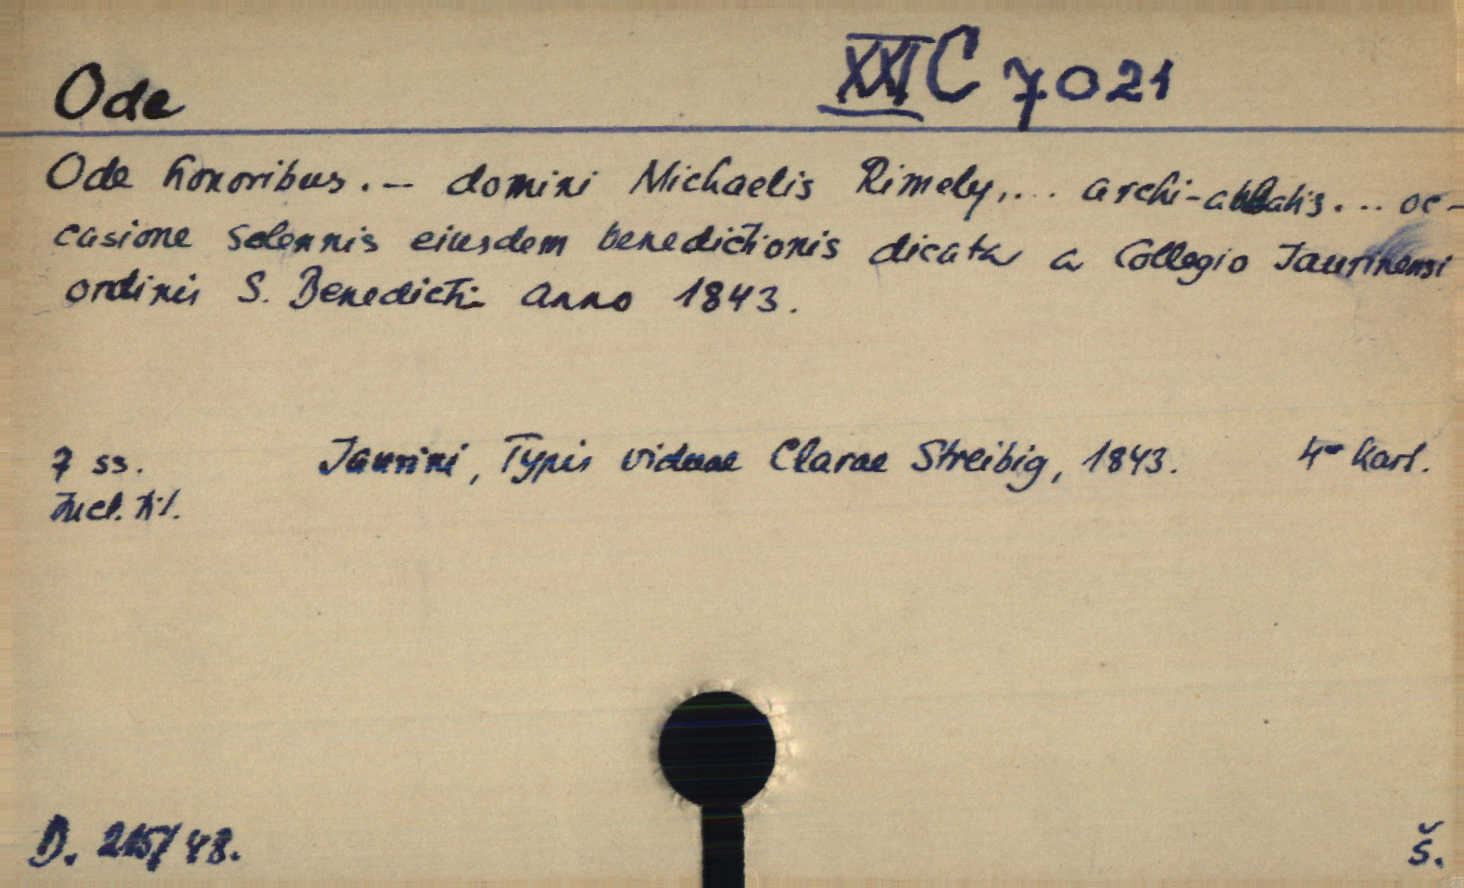 Ode XXI C 7021
Ode honoribus. -- domini Michaelis Rimely,... archi-abbatis... oc-
casione solennis eiusdem benedictionis dicata a Collegio Jaurinensi
ordinis S. Benedicti anno 1843.
7 ss. Jaurini, Typis viduae Clarae Streibig, 1843. 4° kart.
Incl. tit.
D. 215/48. š.